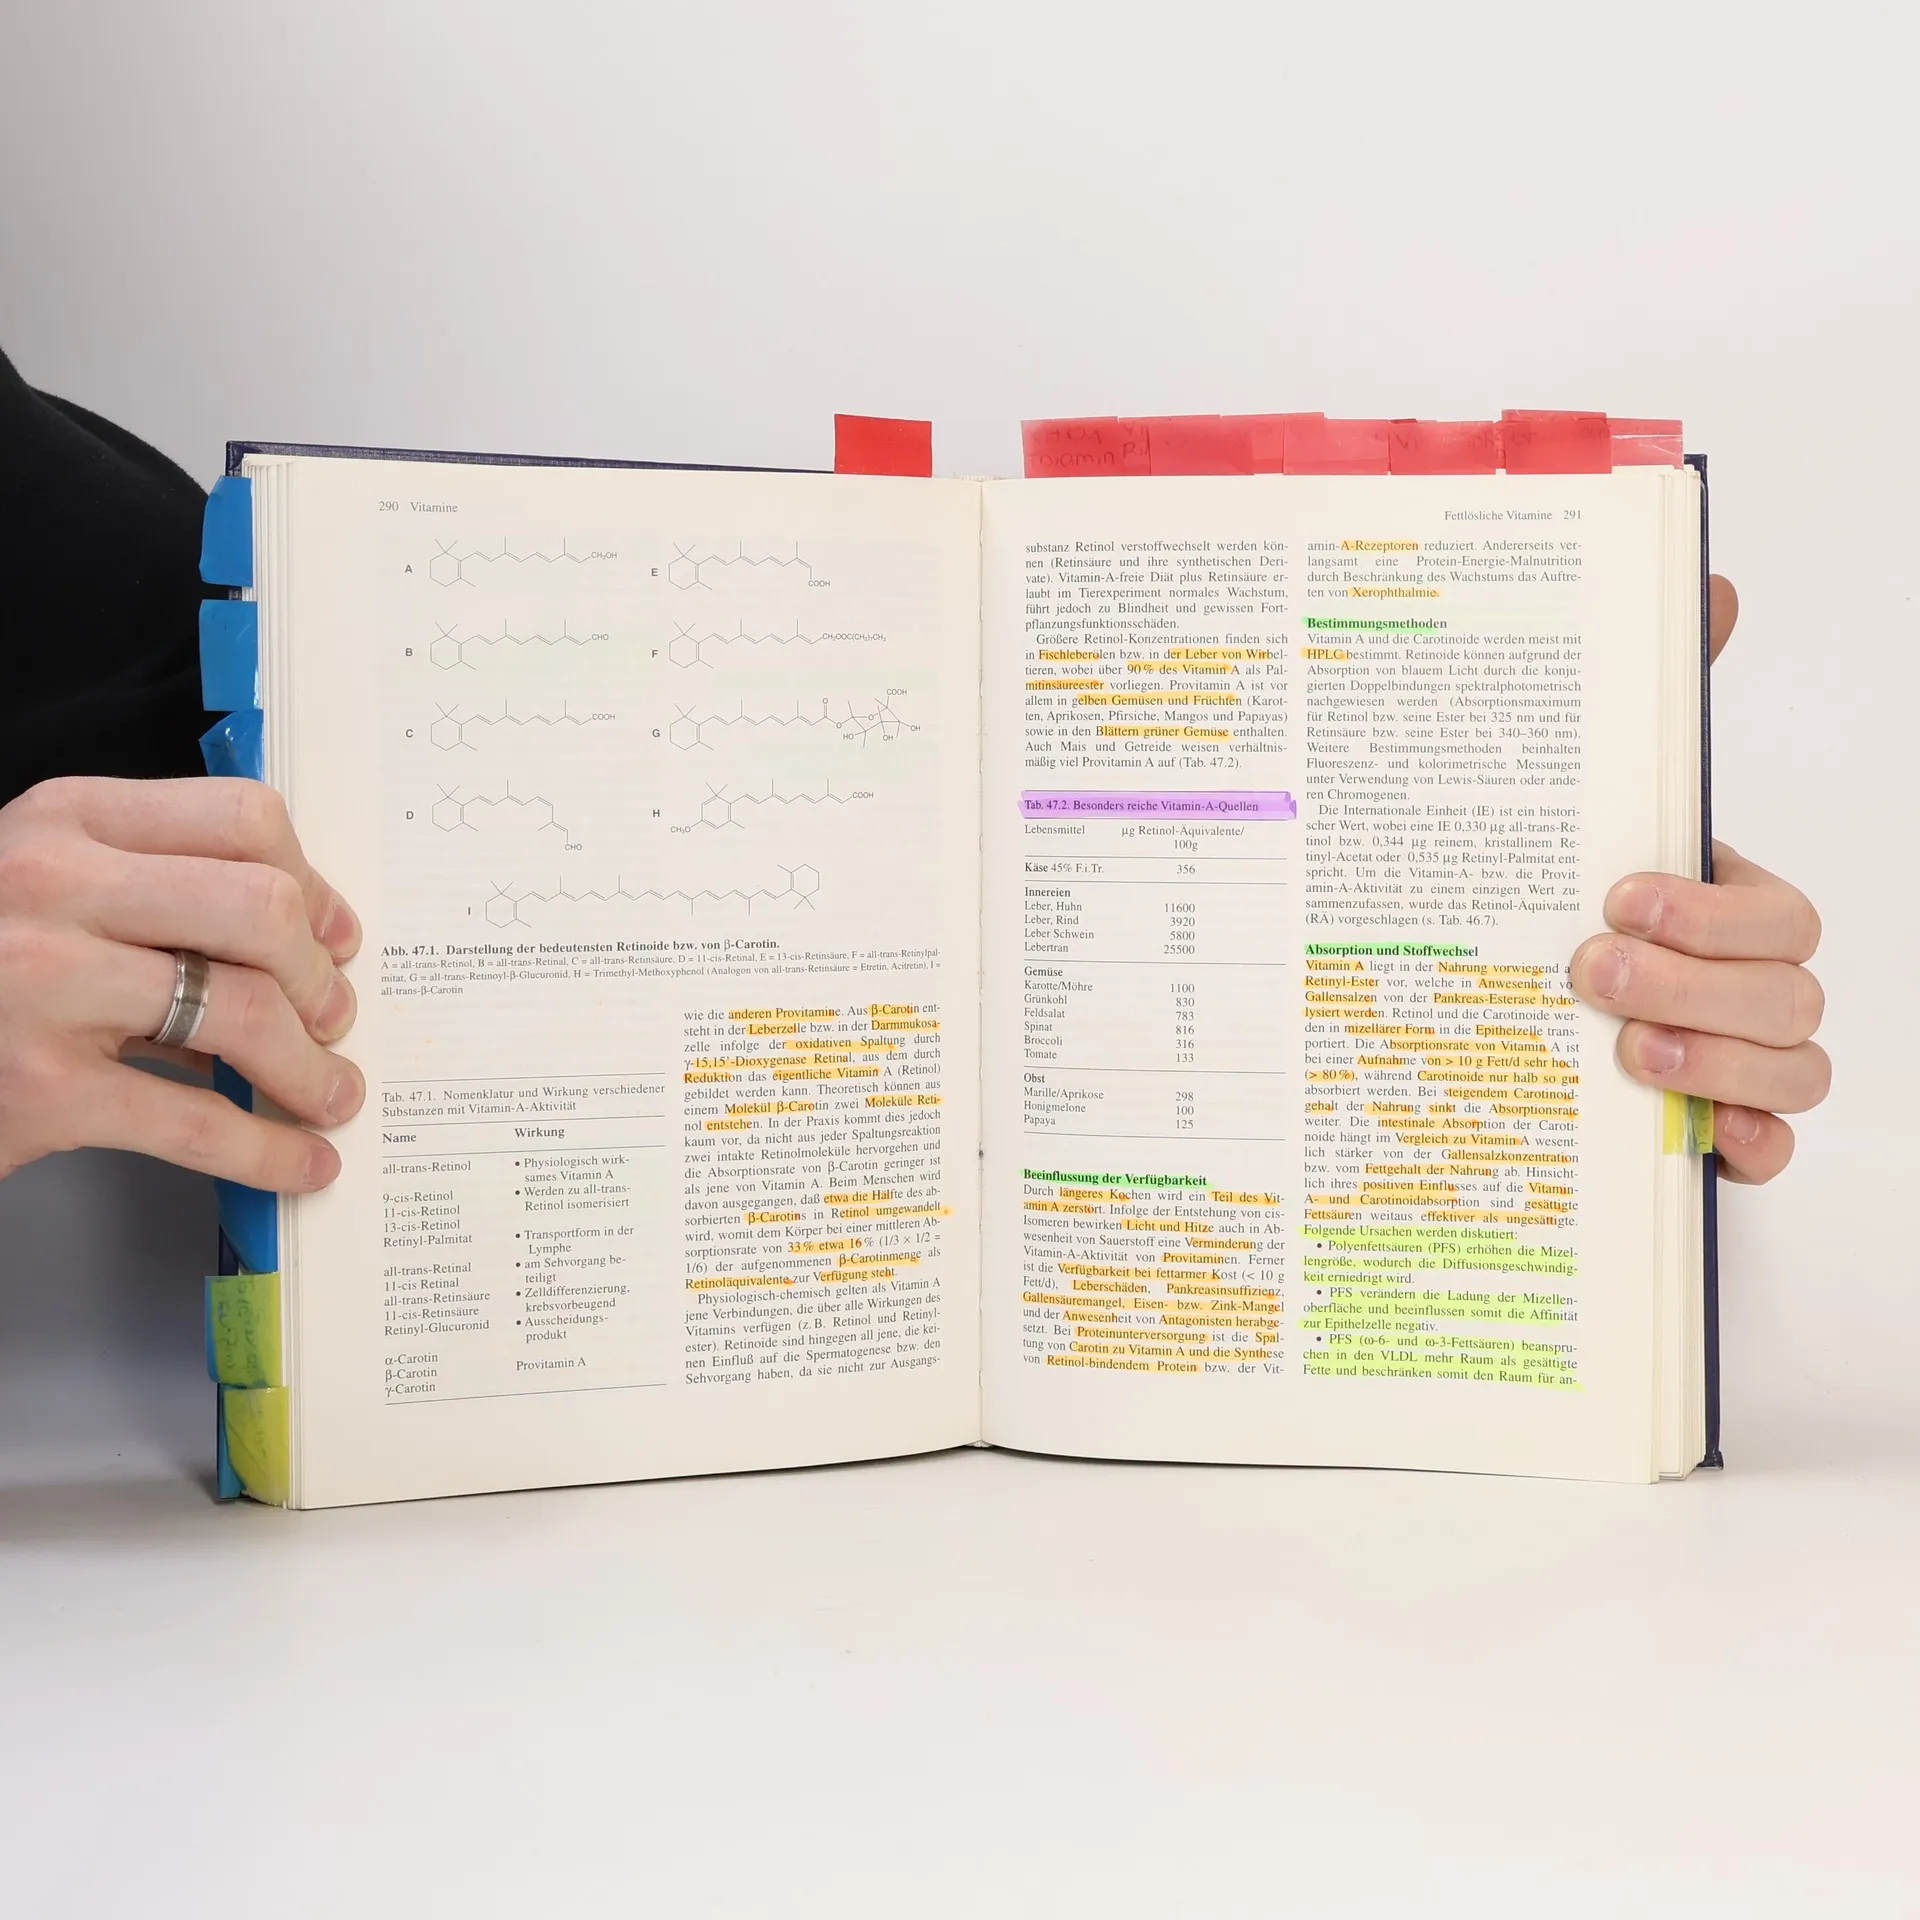 290 Vitamine
A
CH₂OH
E
COOH
B
CHO
F
CH₂OOC(CH₂)₇CH₃
C
COOH
G
O
O
COOH
O
OH
HO
OH
D
CHO
H
CH₃O
COOH
I
Abb. 47.1. Darstellung der bedeutensten Retinoide bzw. von β-Carotin.
A = all-trans-Retinol, B = all-trans-Retinal, C = all-trans-Retinsäure, D = 11-cis-Retinal, E = 13-cis-Retinsäure, F = all-trans-Retinylpal-
mitat, G = all-trans-Retinoyl-β-Glucuronid, H = Trimethyl-Methoxyphenol (Analogon von all-trans-Retinsäure = Etretin, Acitretin), I =
all-trans-β-Carotin
Tab. 47.1. Nomenklatur und Wirkung verschiedener
Substanzen mit Vitamin-A-Aktivität
Name Wirkung
all-trans-Retinol • Physiologisch wirk-
sames Vitamin A
9-cis-Retinol • Werden zu all-trans-
11-cis-Retinol Retinol isomerisiert
13-cis-Retinol
Retinyl-Palmitat • Transportform in der
Lymphe
all-trans-Retinal • am Sehvorgang be-
11-cis Retinal teiligt
all-trans-Retinsäure • Zelldifferenzierung,
11-cis-Retinsäure krebsvorbeugend
Retinyl-Glucuronid • Ausscheidungs-
produkt
α-Carotin
β-Carotin Provitamin A
γ-Carotin
wie die anderen Provitamine. Aus β-Carotin ent-
steht in der Leberzelle bzw. in der Darmmukosa-
zelle infolge der oxidativen Spaltung durch
γ-15,15'-Dioxygenase Retinal, aus dem durch
Reduktion das eigentliche Vitamin A (Retinol)
gebildet werden kann. Theoretisch können aus
einem Molekül β-Carotin zwei Moleküle Reti-
nol entstehen. In der Praxis kommt dies jedoch
kaum vor, da nicht aus jeder Spaltungsreaktion
zwei intakte Retinolmoleküle hervorgehen und
die Absorptionsrate von β-Carotin geringer ist
als jene von Vitamin A. Beim Menschen wird
davon ausgegangen, daß etwa die Hälfte des ab-
sorbierten β-Carotins in Retinol umgewandelt
wird, womit dem Körper bei einer mittleren Ab-
sorptionsrate von 33% etwa 16% (1/3 × 1/2 =
1/6) der aufgenommenen β-Carotinmenge als
Retinoläquivalente zur Verfügung steht.
Physiologisch-chemisch gelten als Vitamin A
jene Verbindungen, die über alle Wirkungen des
Vitamins verfügen (z. B. Retinol und Retinyl-
ester). Retinoide sind hingegen all jene, die kei-
nen Einfluß auf die Spermatogenese bzw. den
Sehvorgang haben, da sie nicht zur Ausgangs-
Fettlösliche Vitamine 291
substanz Retinol verstoffwechselt werden kön-
nen (Retinsäure und ihre synthetischen Deri-
vate). Vitamin-A-freie Diät plus Retinsäure er-
laubt im Tierexperiment normales Wachstum,
führt jedoch zu Blindheit und gewissen Fort-
pflanzungsfunktionsschäden.
Größere Retinol-Konzentrationen finden sich
in Fischleberölen bzw. in der Leber von Wirbel-
tieren, wobei über 90% des Vitamin A als Pal-
mitinsäureester vorliegen. Provitamin A ist vor
allem in gelben Gemüsen und Früchten (Karot-
ten, Aprikosen, Pfirsiche, Mangos und Papayas)
sowie in den Blättern grüner Gemüse enthalten.
Auch Mais und Getreide weisen verhältnis-
mäßig viel Provitamin A auf (Tab. 47.2).
Tab. 47.2. Besonders reiche Vitamin-A-Quellen
Lebensmittel µg Retinol-Äquivalente/
100g
Käse 45% F.i.Tr. 356
Innereien
Leber, Huhn 11600
Leber, Rind 3920
Leber Schwein 5800
Lebertran 25500
Gemüse
Karotte/Möhre 1100
Grünkohl 830
Feldsalat 783
Spinat 816
Broccoli 316
Tomate 133
Obst
Marille/Aprikose 298
Honigmelone 100
Papaya 125
Beeinflussung der Verfügbarkeit
Durch längeres Kochen wird ein Teil des Vit-
amin A zerstört. Infolge der Entstehung von cis-
Isomeren bewirken Licht und Hitze auch in Ab-
wesenheit von Sauerstoff eine Verminderung der
Vitamin-A-Aktivität von Provitaminen. Ferner
ist die Verfügbarkeit bei fettarmer Kost (< 10 g
Fett/d), Leberschäden, Pankreasinsuffizienz,
Gallensäuremangel, Eisen- bzw. Zink-Mangel
und der Anwesenheit von Antagonisten herabge-
setzt. Bei Proteinunterversorgung ist die Spal-
tung von Carotin zu Vitamin A und die Synthese
von Retinol-bindendem Protein bzw. der Vit-
amin-A-Rezeptoren reduziert. Andererseits ver-
langsamt eine Protein-Energie-Malnutrition
durch Beschränkung des Wachstums das Auftre-
ten von Xerophthalmie.
Bestimmungsmethoden
Vitamin A und die Carotinoide werden meist mit
HPLC bestimmt. Retinoide können aufgrund der
Absorption von blauem Licht durch die konju-
gierten Doppelbindungen spektralphotometrisch
nachgewiesen werden (Absorptionsmaximum
für Retinol bzw. seine Ester bei 325 nm und für
Retinsäure bzw. seine Ester bei 340–360 nm).
Weitere Bestimmungsmethoden beinhalten
Fluoreszenz- und kolorimetrische Messungen
unter Verwendung von Lewis-Säuren oder ande-
ren Chromogenen.
Die Internationale Einheit (IE) ist ein histori-
scher Wert, wobei eine IE 0,330 µg all-trans-Re-
tinol bzw. 0,344 µg reinem, kristallinem Re-
tinyl-Acetat oder 0,535 µg Retinyl-Palmitat ent-
spricht. Um die Vitamin-A- bzw. die Provit-
amin-A-Aktivität zu einem einzigen Wert zu-
sammenzufassen, wurde das Retinol-Äquivalent
(RÄ) vorgeschlagen (s. Tab. 46.7).
Absorption und Stoffwechsel
Vitamin A liegt in der Nahrung vorwiegend a
Retinyl-Ester vor, welche in Anwesenheit vo
Gallensalzen von der Pankreas-Esterase hydro-
lysiert werden. Retinol und die Carotinoide wer-
den in mizellärer Form in die Epithelzelle trans-
portiert. Die Absorptionsrate von Vitamin A ist
bei einer Aufnahme von > 10 g Fett/d sehr hoch
(> 80%), während Carotinoide nur halb so gut
absorbiert werden. Bei steigendem Carotinoid-
gehalt der Nahrung sinkt die Absorptionsrate
weiter. Die intestinale Absorption der Caroti-
noide hängt im Vergleich zu Vitamin A wesent-
lich stärker von der Gallensalzkonzentration
bzw. vom Fettgehalt der Nahrung ab. Hinsicht-
lich ihres positiven Einflusses auf die Vitamin-
A- und Carotinoidabsorption sind gesättigte
Fettsäuren weitaus effektiver als ungesättigte.
Folgende Ursachen werden diskutiert:
• Polyenfettsäuren (PFS) erhöhen die Mizel-
lengröße, wodurch die Diffusionsgeschwindig-
keit erniedrigt wird.
• PFS verändern die Ladung der Mizellen-
oberfläche und beeinflussen somit die Affinität
zur Epithelzelle negativ.
• PFS (ω-6- und ω-3-Fettsäuren) beanspru-
chen in den VLDL mehr Raum als gesättigte
Fette und beschränken somit den Raum für an-